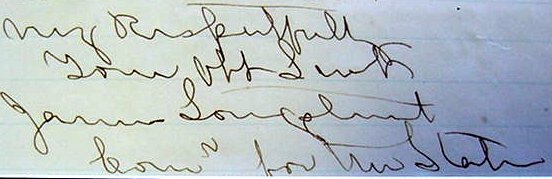 Very Respectfully
Your Obt Servt
James Longstreet
Com^r for the State